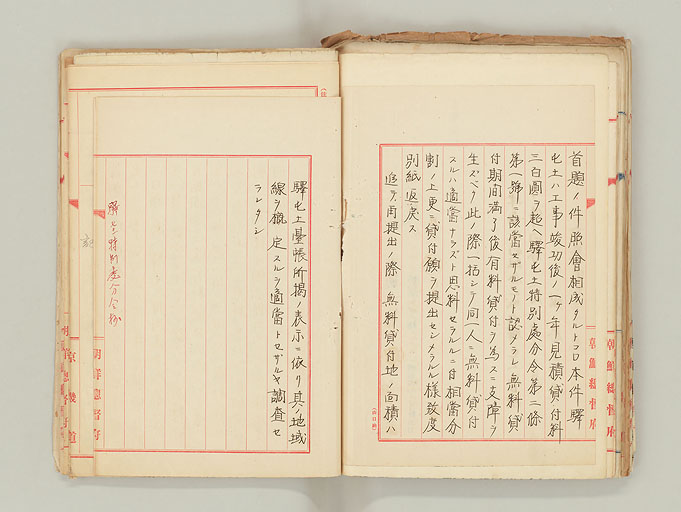 首題ノ件照會相成タルトコロ本件驛
屯土ハ工事竣功後ノ一ヶ年見積貸付料
三百圓ヲ超ヘ驛屯土特別處分令第二條
第一號ニ該當セザルモノト認メラレ無料貸
付期間満了後有料貸付ヲ為スニ支障ヲ
生ズベク此ノ際一括シテ同一人ニ無料貸付
スルハ適當ナラズト思料セラルルニ付相當分
割ノ上更ニ貸付願ヲ提出セシメラルル様致度
別紙返戻ス
追テ再提出ノ際無料貸付地ノ面積ハ
朝鮮總督府
驛屯土臺帳所揭ノ表示ニ依リ其ノ地域
線ヲ確定スルヲ適當トセザルヤ調査セ
ラレタシ
驛屯土特別處分令
朝鮮總督府
京畿道